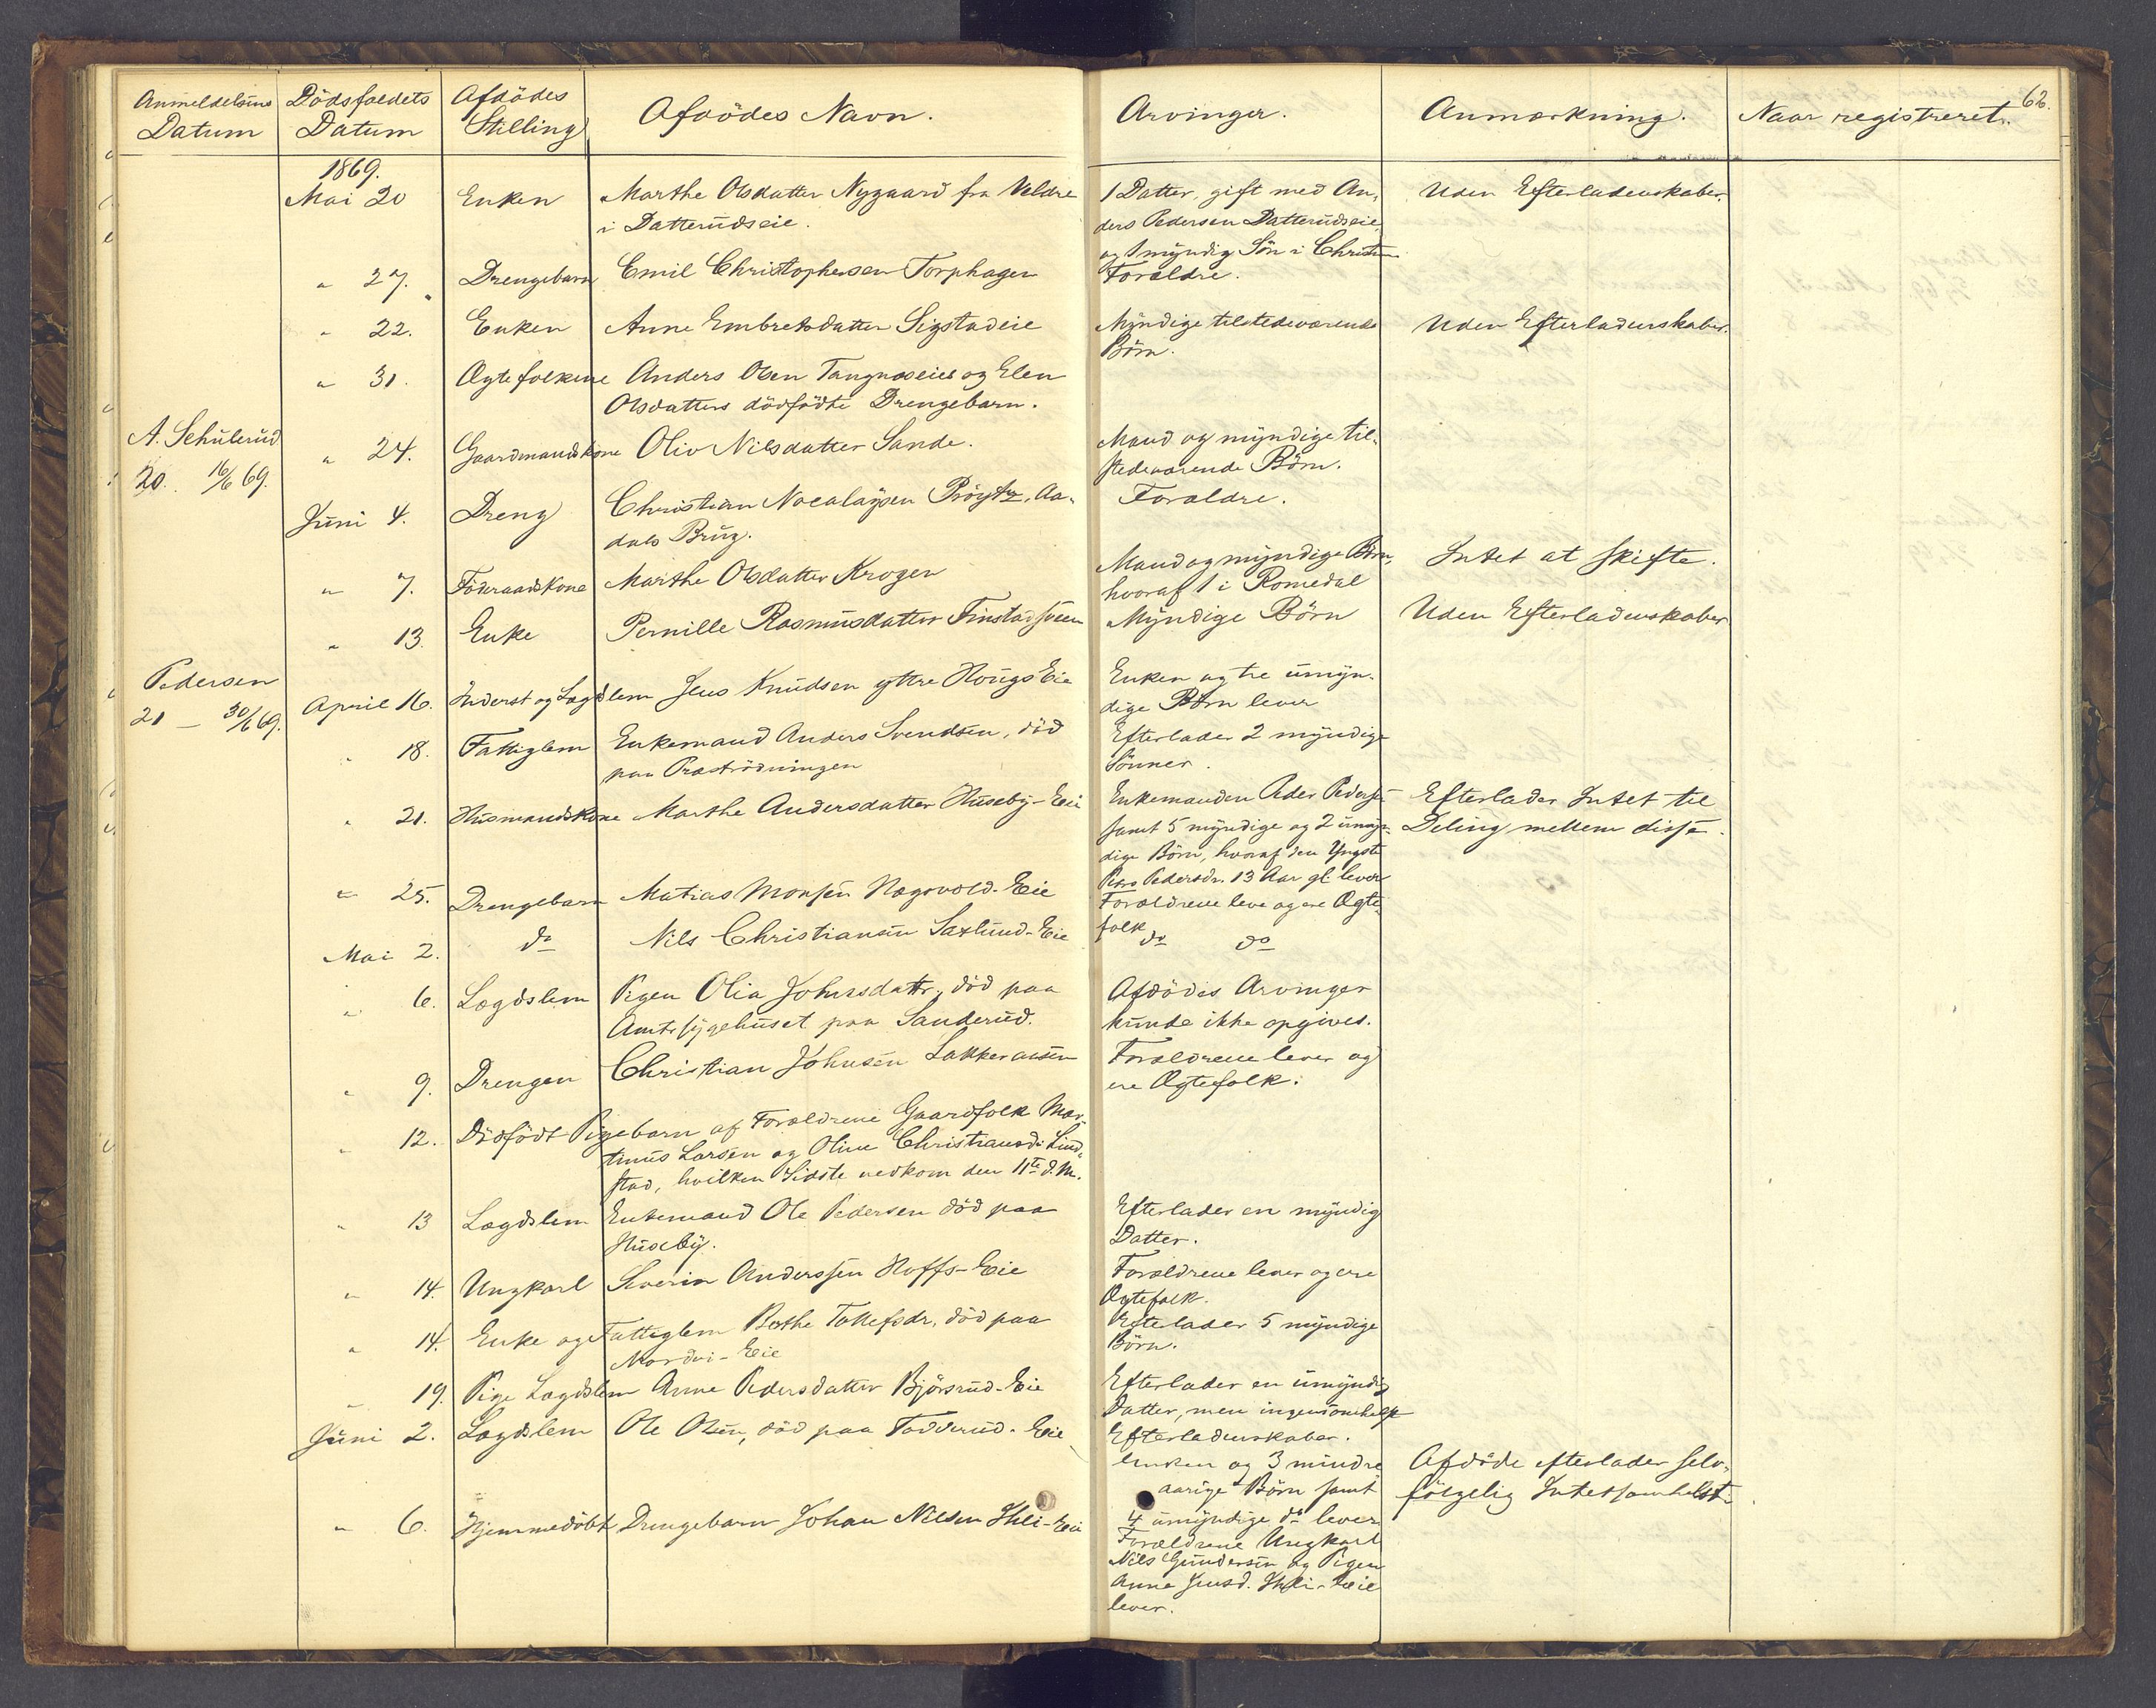 62.
Anmeldelsens Datum | Dödsfaldets Datum | Afdödes Stilling | Afdödes Navn. | Arvinger. | Anmærkning. | Naar registreret.
1869.
Mai 20 | Enken | Marthe Olsdatter Nygaard fra Veldre | 1 Datter, gift med An- | Uden Efterladenskaber.
i Datterudseie. | ders Pedersen Datterudseie,
og 1 myndig Sön i Christ
" 27. | Drengebarn | Emil Christophersen Torphagen | Forældre.
" 22. | Enken | Anne Embretsdatter Sigstadeie | Myndige tilstedeværende | Uden Efterladenskaber.
Börn.
" 31. | Ægtefolkene | Anders Olsen Tangnæseies og Elen
Olsdatters dödfödte Drengebarn.
A. Schulerud | " 24. | Gaardmandskone | Oliv Nilsdatter Sande. | Mand og myndige til-
20. 16/6 69. | stedeværende Börn.
Juni 4. | Dreng | Christian Nocolaysen Pröytz, Aa- | Forældre.
dals Brug.
" 7. | Föderaadskone | Marthe Olsdatter Krogen | Mand og myndige Börn, | Intet at skifte.
hvoraf 1 i Romedal
" 13. | Enke | Pernille Rasmusdatter Finstadsveen | Myndige Börn | Uden Efterladenskaber
Pedersen
21 — 30/6 69. | April 16. | Inderst og Lægdslem | Jens Knudsen yttre Hougs Eie | Enken og tre umyn-
dige Börn lever
" 18. | Fattiglem | Enkemand Anders Svendsen, död | Efterlader 2 myndige
paa Præströdningen | Sönner.
" 21. | Husmandskone | Marthe Andersdatter Huseby-Eie | Enkemanden Peder Pedersen | Efterlader Intet til
samt 5 myndige og 2 umyn- | Deling mellem disse.
dige Börn, hvoraf den Yngste
Pedersdr. 13 Aar gl. lever
" 25. | Drengebarn | Matias Monsen Nægsvold-Eie | Forældrene leve og ere Ægte-
folk
Mai 2. | do | Nils Christiansen Saxlund-Eie | do do
" 6. | Lægdslem | Pigen Olia Johnsdattr, död paa | Afdödes Arvinger
Amtssygehuset paa Sanderud. | kunde ikke opgives.
" 9. | Drengen | Christian Johnsen | Forældrene lever og
ere Ægtefolk.
" 12. | Dödfödt Pigebarn af Forældrene Gaardfolk Mar-
tinus Larsen og Oline Christiansdr Lind-
stad, hvilken Sidste nedkom den 11te d. M.
" 13 | Lægdslem | Enkemand Ole Pedersen död paa | Efterlader en myndig
Huseby. | Datter.
" 14. | Ungkarl | Severin Anderssen Hoffs-Eie | Forældrene lever og ere
Ægtefolk.
" 14. | Enke og Fattiglem | Berthe Tollefsdr, död paa | Efterlader 5 myndige
Nordvi-Eie | Börn.
" 19. | Pige Lægdslem | Anne Pedersdatter Björsrud-Eie | Efterlader en umyndig
Datter, men ingensomhelst
Efterladenskaber.
Juni 2. | Lægdslem | Ole Olsen, död paa Fodderud-Eie | Enken og 3 mindre- | Afdöde efterlader selv-
aarige Börn samt | fölgelig Intetsomhelst.
4 umyndige do lever
" 6. | Hjemmedöbt Drengebarn Johan Nilsen Ihli-Eie | Forældrene Ungkarl
Nils Gundersen og Pigen
Anne Jensd. Ihli-Eie
lever.